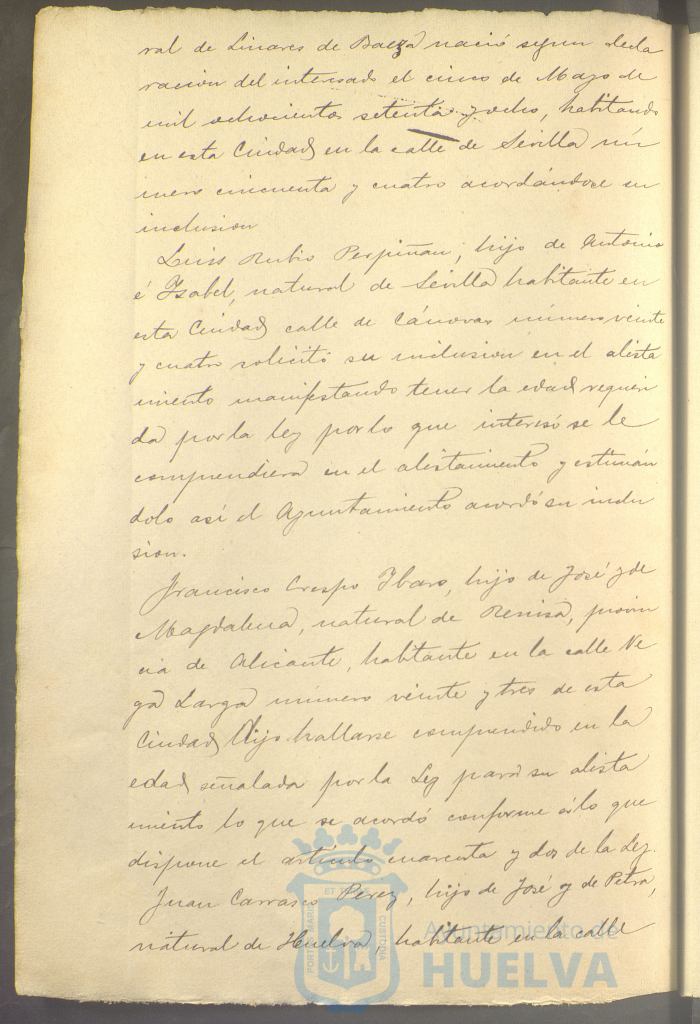 ral de Linares de Baeza nació segun decla
racion del interesado el cinco de Mayo de
mil ochocientos setenta y ocho, habitando
en esta Ciudad en la calle de Sevilla nú
mero cincuenta y cuatro acordándose su
inclusion
Luis Rubio Perpiñan, hijo de Antonio
é Isabel, natural de Sevilla habitante en
esta Ciudad calle de Cánovas número veinte
y cuatro solicitó su inclusion en el alista
miento manifestando tener la edad requeri
da por la ley por lo que interesó se le
comprendiera en el alistamiento y estimán
dolo así el Ayuntamiento acordó su inclu
sion.
Francisco Crespo Ibars, hijo de José y de
Magdalena, natural de Benisa, provin
cia de Alicante, habitante en la calle Ve
ga Larga número veinte y tres de esta
Ciudad dijo hallarse comprendido en la
edad señalada por la Ley para su alista
miento lo que se acordó conforme á lo que
dispone el artículo cuarenta y dos de la Ley.
Juan Carrasco Perez, hijo de José y de Petra,
natural de Huelva, habitante en la calle
PORTUS MARIS ET TERRAE CUSTODIA
Ayuntamiento de
HUELVA